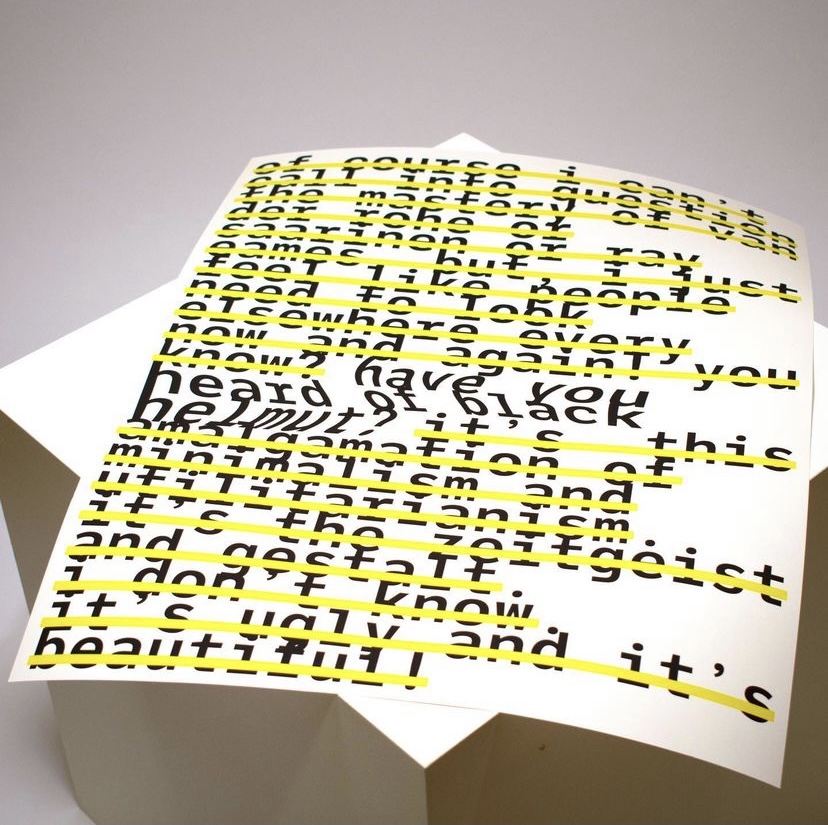 of course i can't
call into question
the mastery of van
der rohe or
saarinen or ray
eames, but i just
feel like people
need to look
elsewhere every
now and again! you
know? have you
heard of black
helmut? it's this
amalgamation of
minimalism and
utilitarianism
it's the zeitgeist
and gestalt
i don't know,
it's ugly and it's
beautiful!